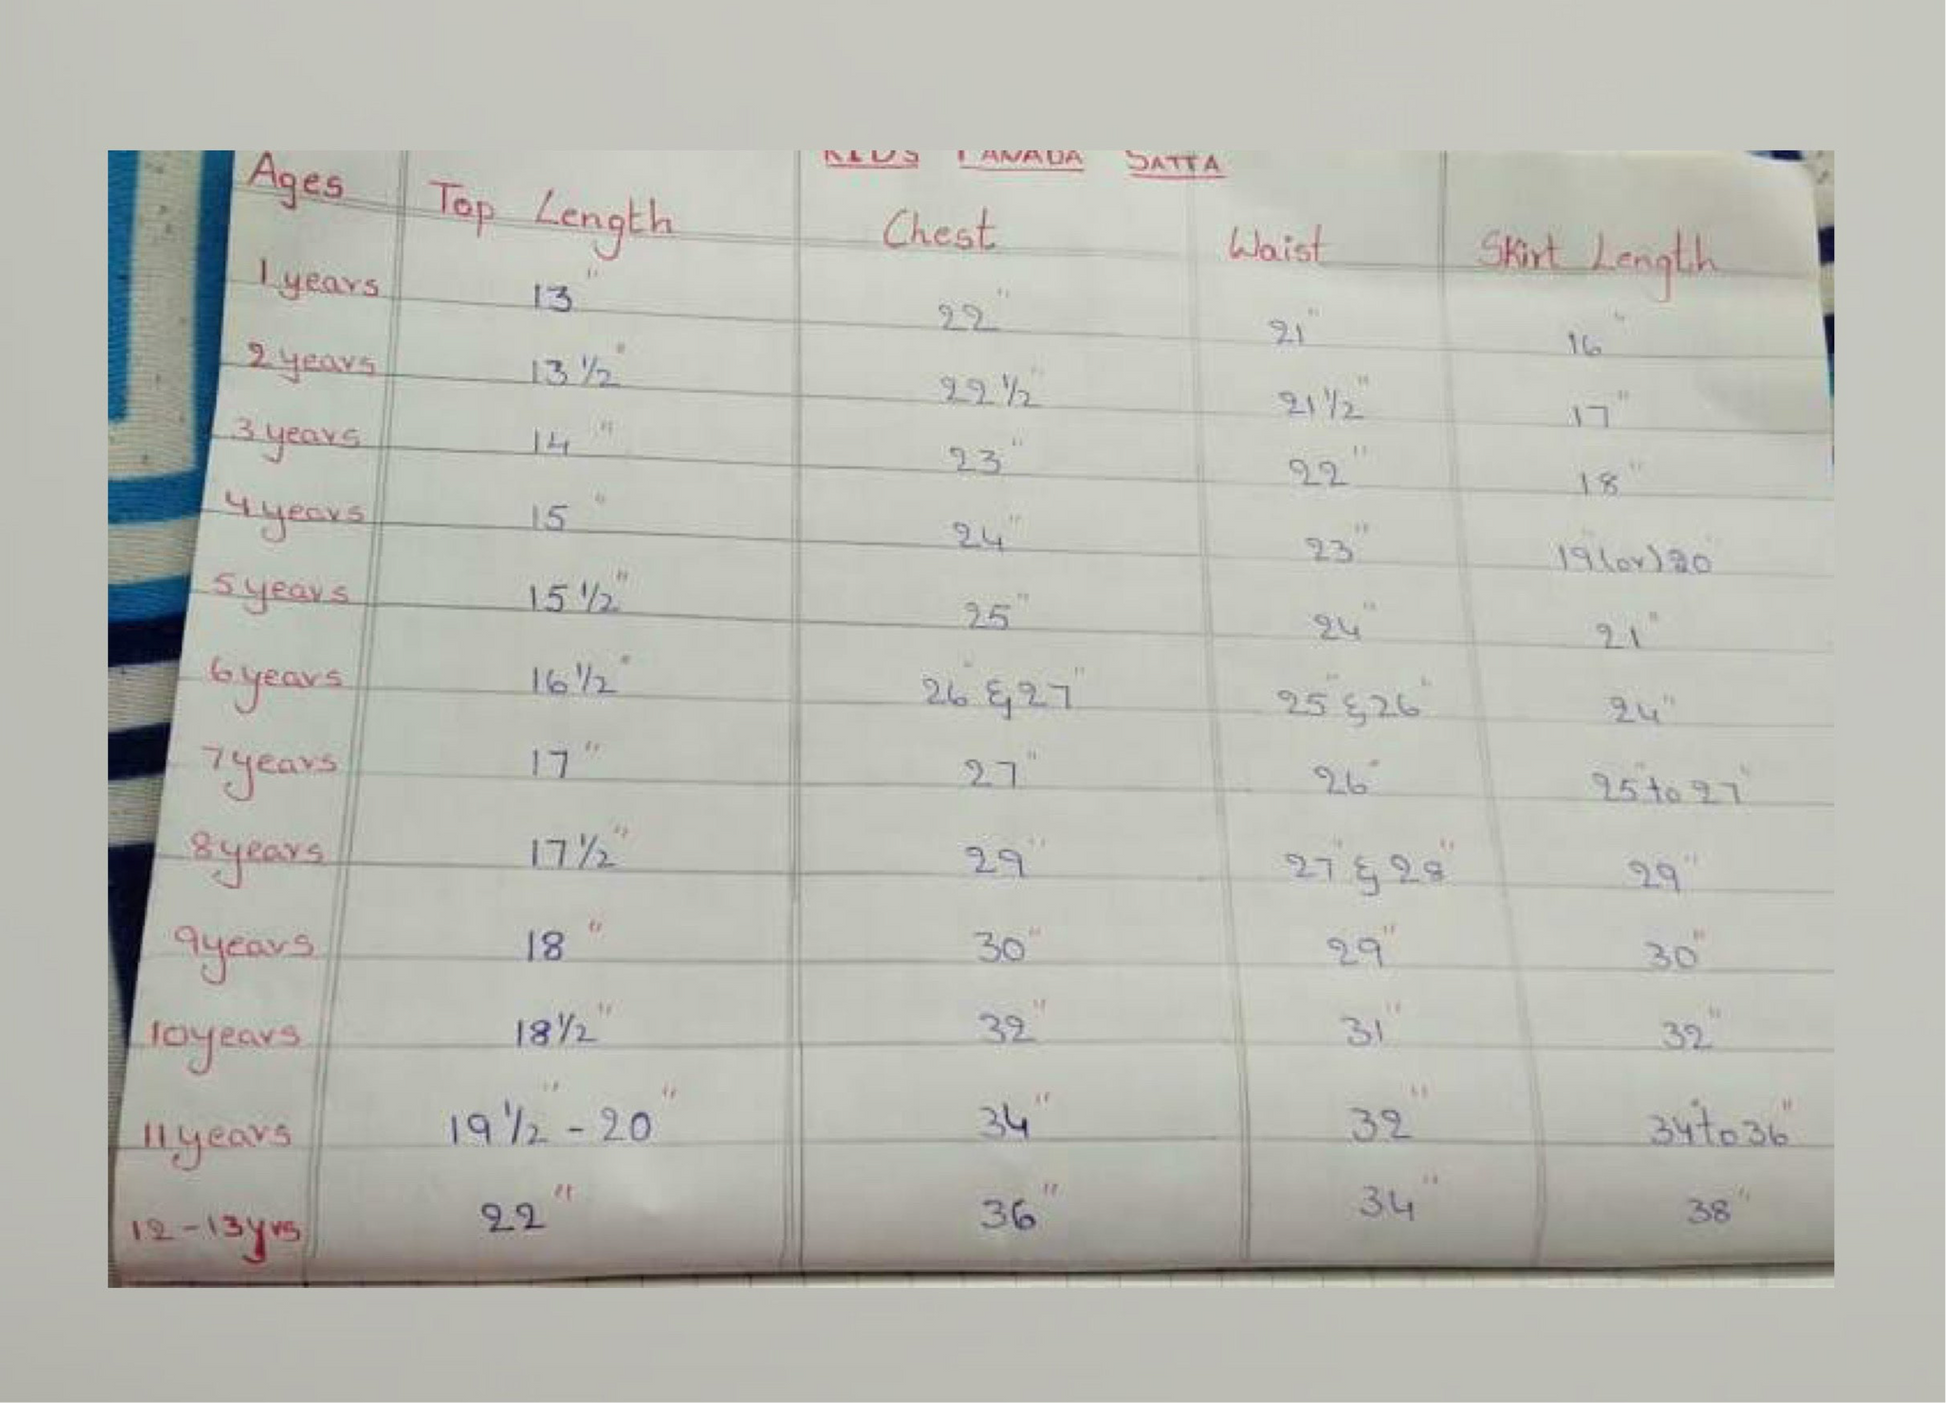 KIDS PAVADA SATTA
Ages Top Length Chest Waist Skirt Length
1 years 13" 22" 21" 16"
2 years 13 1/2" 22 1/2" 21 1/2" 17"
3 years 14" 23" 22" 18"
4 years 15" 24" 23" 19"(or)20"
5 years 15 1/2" 25" 24" 21"
6 years 16 1/2" 26" & 27" 25" & 26" 24"
7 years 17" 27" 26" 25" to 27"
8 years 17 1/2" 29" 27" & 28" 29"
9 years 18" 30" 29" 30"
10 years 18 1/2" 32" 31" 32"
11 years 19 1/2" - 20" 34" 32" 34" to 36"
12-13 yrs 22" 36" 34" 38"